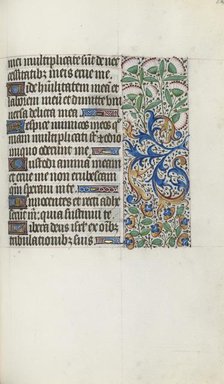 mei multiplicate sūt de ne
cessitatibꝫ meis erue me.
Uide humilitatem meā et
laborem meū et dimitte vni
versa delicta mea
Respice inimicos meos q̄
niam multiplicati st et odio
iniquo oderunt me
Custodi animā meam
et erue me non erubescam
qm̄ speravi in te.
Innocentes et recti adhe
serūt m̄: quia sustinui te.
Libera deus isrl̄ ex oībꝫ
tribulationibꝫ suis